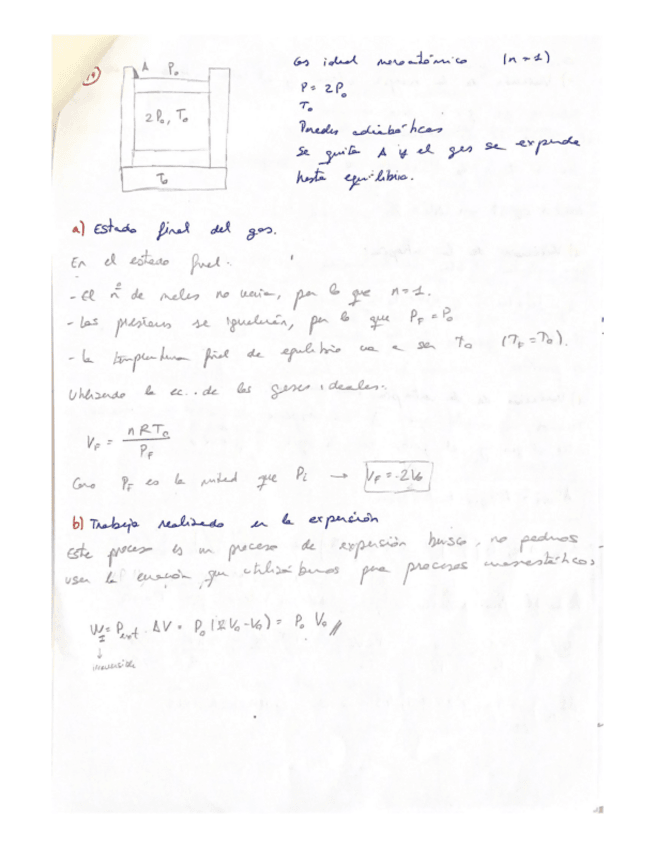 19
A P₀
2P₀, T₀
T₀
Gas ideal monoatómico (n=1)
P = 2P₀
T₀
Paredes adiabáticas
Se quita A y el gas se expande
hasta equilibrio.
a) Estado final del gas.
En el estado final.
- El nº de moles no varía, por lo que n=1.
- Las presiones se igualarán, por lo que P_F = P₀
- La temperatura final de equilibrio va a ser T₀ (T_F = T₀).
Utilizando la ec. de los gases ideales:
V_F = nRT₀ / P_F
Como P_F es la mitad que Pi → V_F = 2V₀
b) Trabajo realizado en la expansión
Este proceso es un proceso de expansión brusco, no podemos
usar la ecuación que utilizábamos para procesos cuasiestáticos
W_I = P_ext · ΔV = P₀ (2V₀ - V₀) = P₀ V₀ //
↓